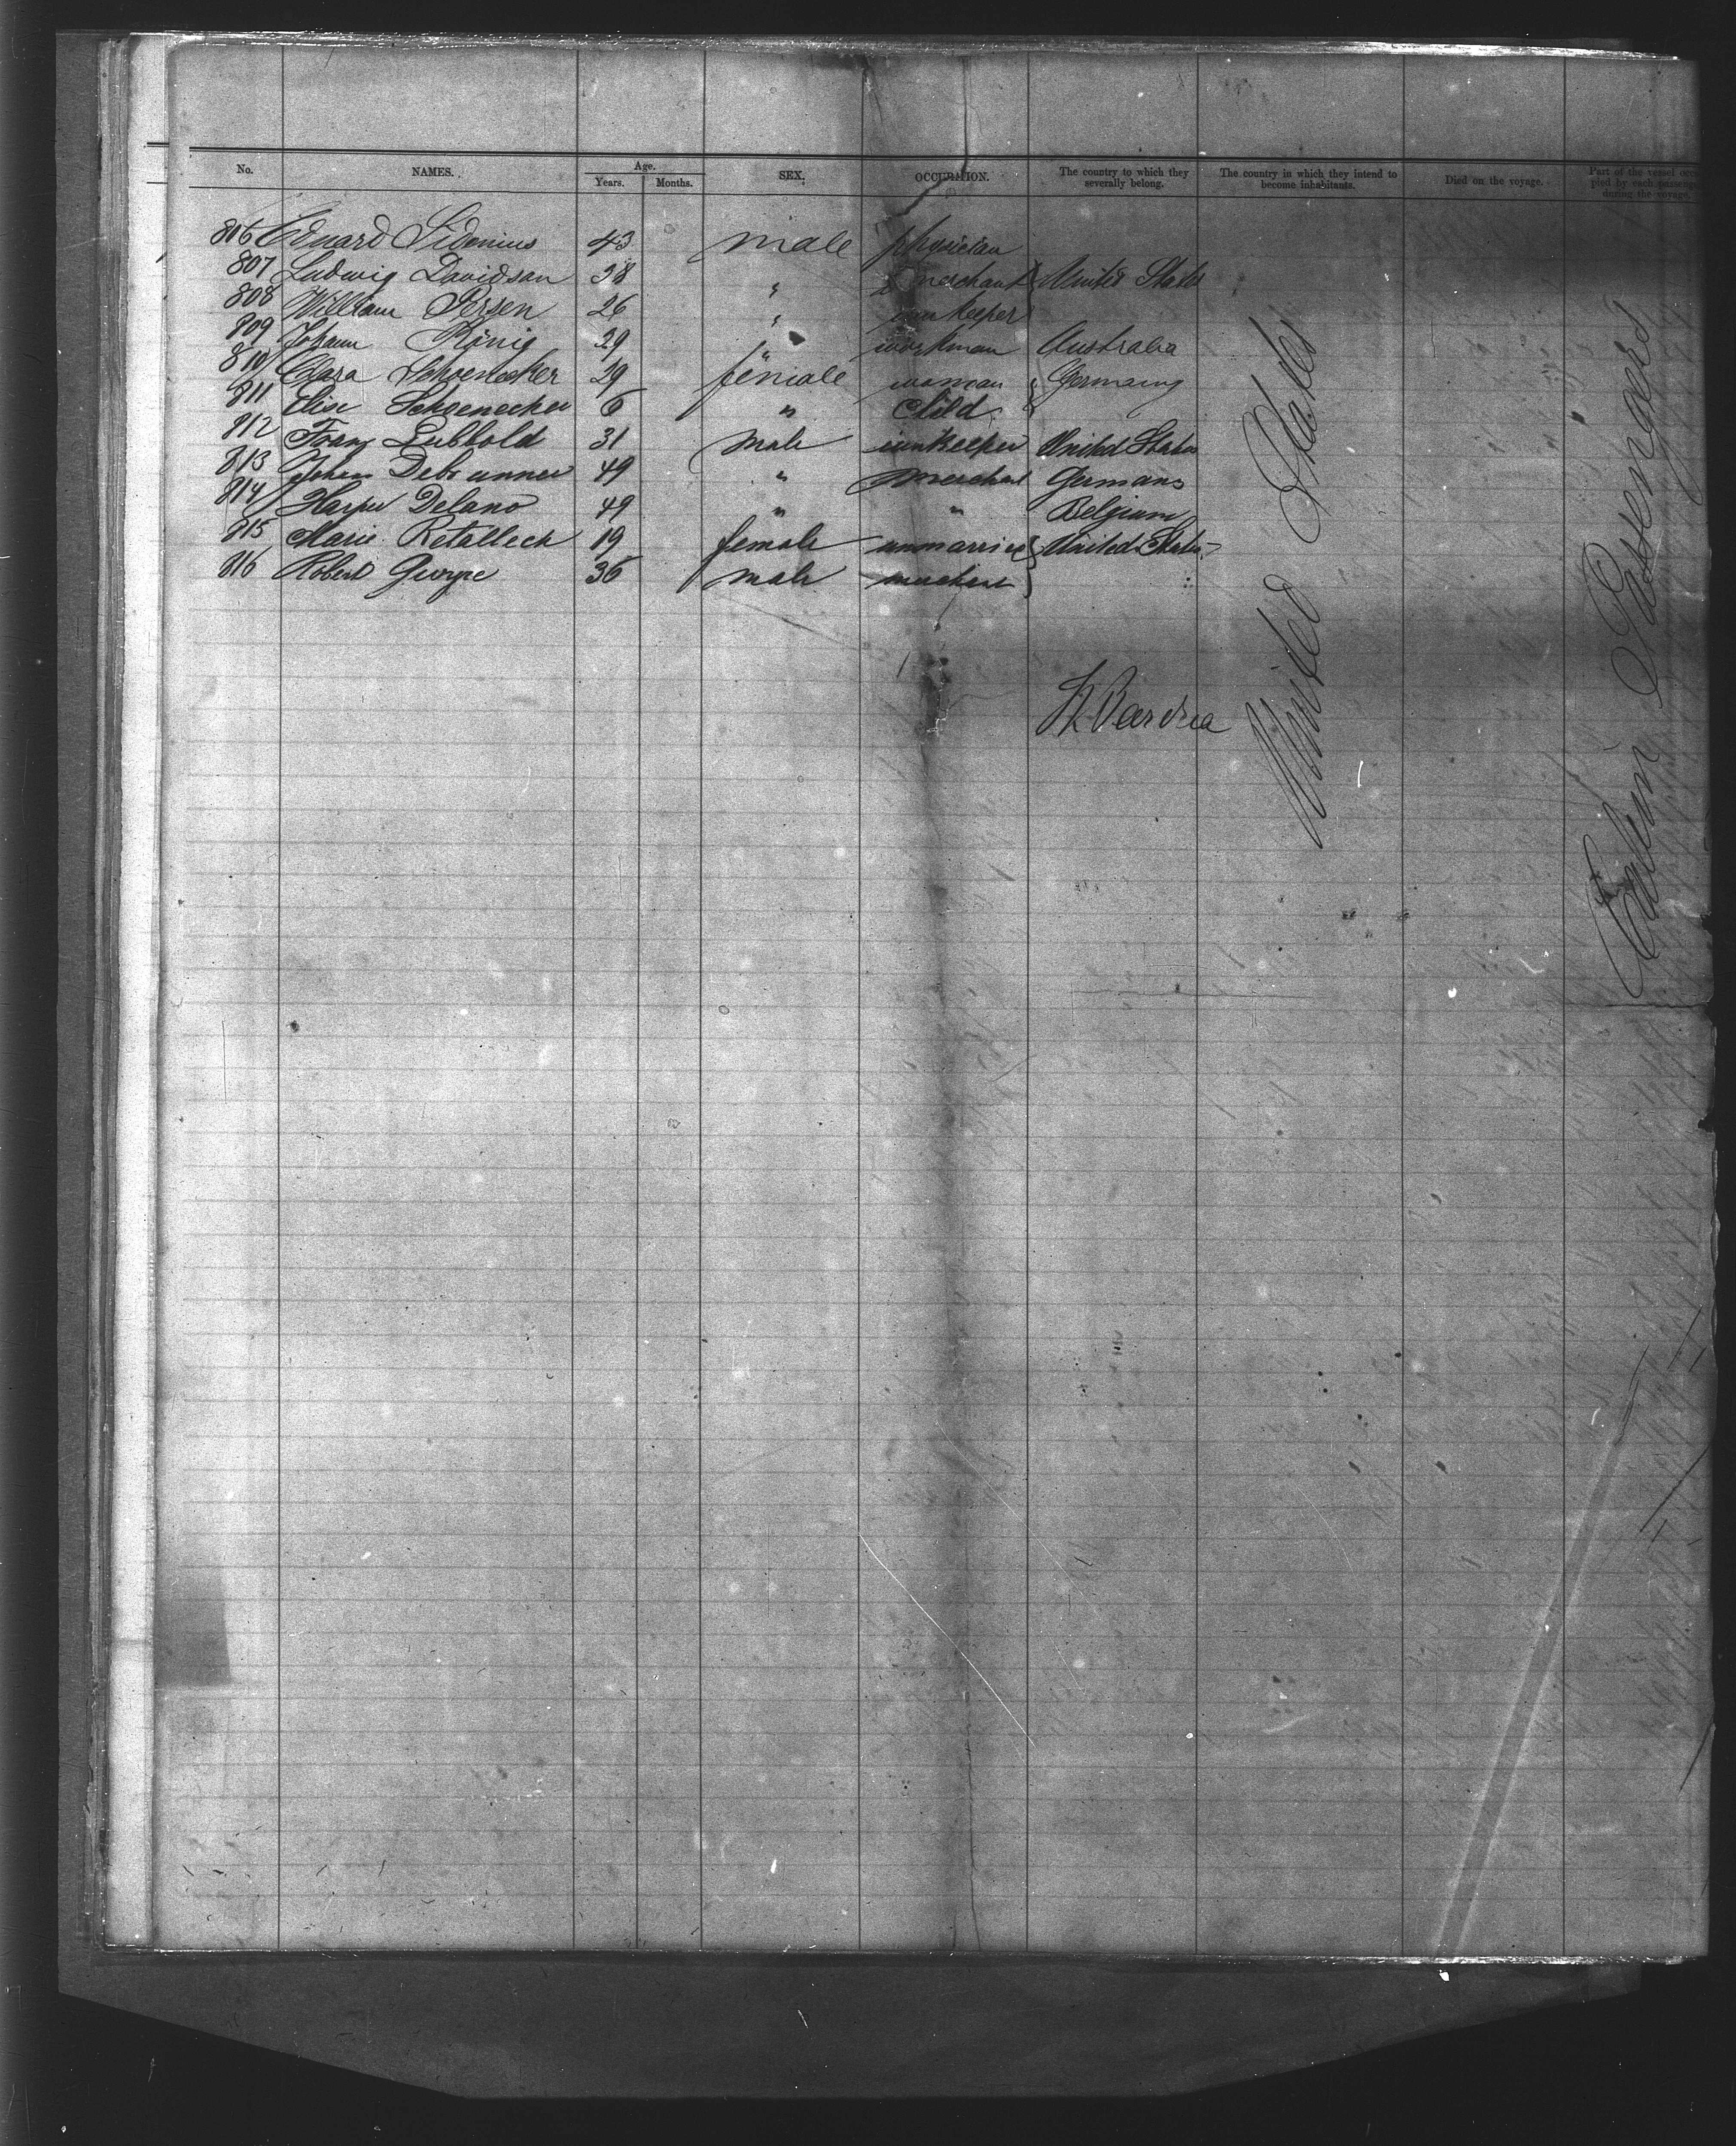 No. NAMES. Age. Years. Months. SEX. OCCUPATION. The country to which they severally belong. The country in which they intend to become inhabitants. Died on the voyage. Part of the vessel occupied by each passenger during the voyage.
806 Eduard Sidonius 43 male physician
807 Ludwig Davidson 38 " merchant United States
808 William 26 " innkeeper
809 Johann König 29 " workman Australia
810 Clara Schoenecker 29 female woman Germany
811 Elise Schoenecker 6 " child
812 Franz Lubbold 31 male innkeeper United States
813 Johan Debrunner 49 " merchant Germany
814 Harper Delano 49 " " Belgium
815 Marie Retalleck 19 female unmarried United States
816 Robert George 36 male
United States
Cabin Passengers